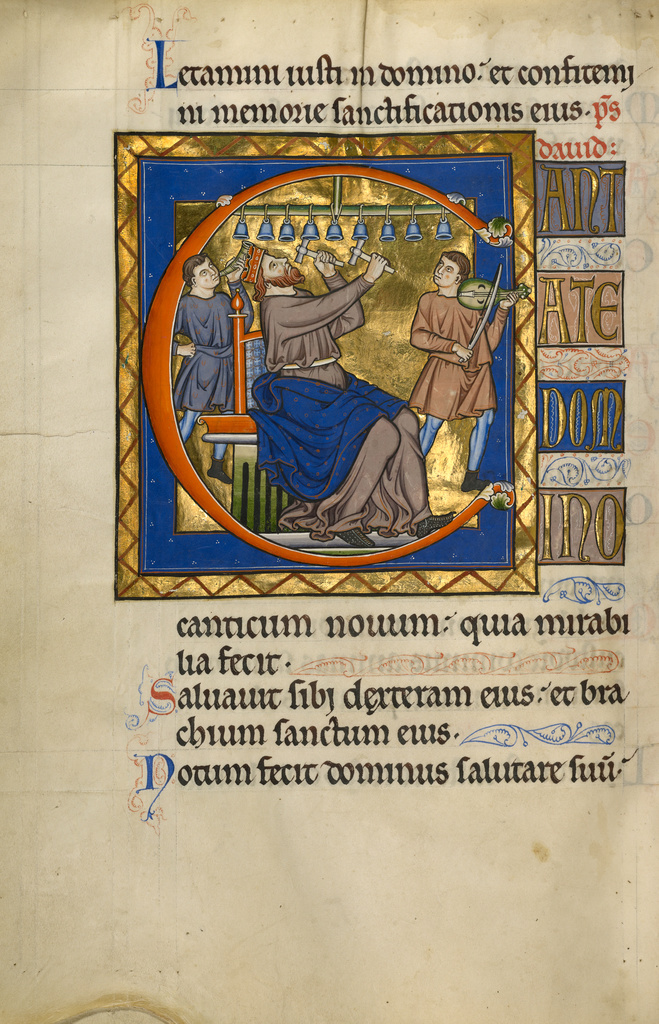 Letamini iusti in domino: et confitemi
ni memorie sanctificationis eius. ps
dauid:
C
ANT
ATE
DOM
INO
canticum nouum: quia mirabi
lia fecit.
Saluauit sibi dextera eius: et bra
chium sanctum eius.
Notum fecit dominus salutare suū: